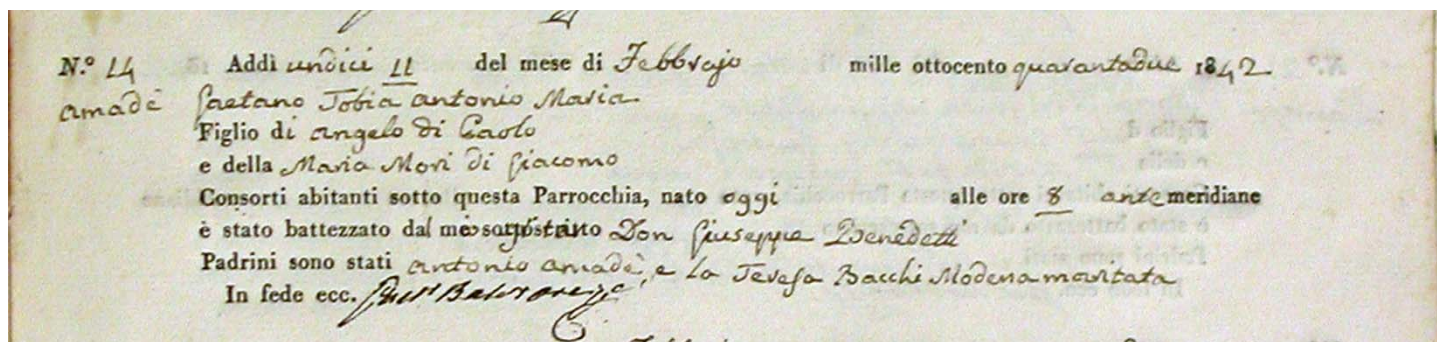 N.º 14 Addì undici 11 del mese di Febbrajo mille ottocento quarantadue 1842
amadè Gaetano Tobia antonio Maria
Figlio di angelo di Paolo
e della Maria Mori di Giacomo
Consorti abitanti sotto questa Parrocchia, nato oggi alle ore 8 antemeridiane
è stato battezzato dal Don Giuseppe Benedetti
Padrini sono stati antonio amadè, e la Teresa Bacchi Modena maritata
In fede ecc.